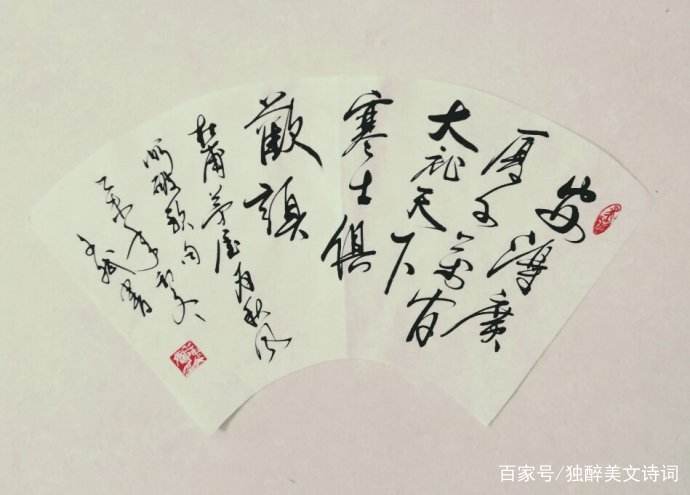 安得廣
厦千萬间
大庇天下
寒士俱
歡顔
杜甫茅屋为秋风
所破歌句
書
百家号/独醉美文诗词